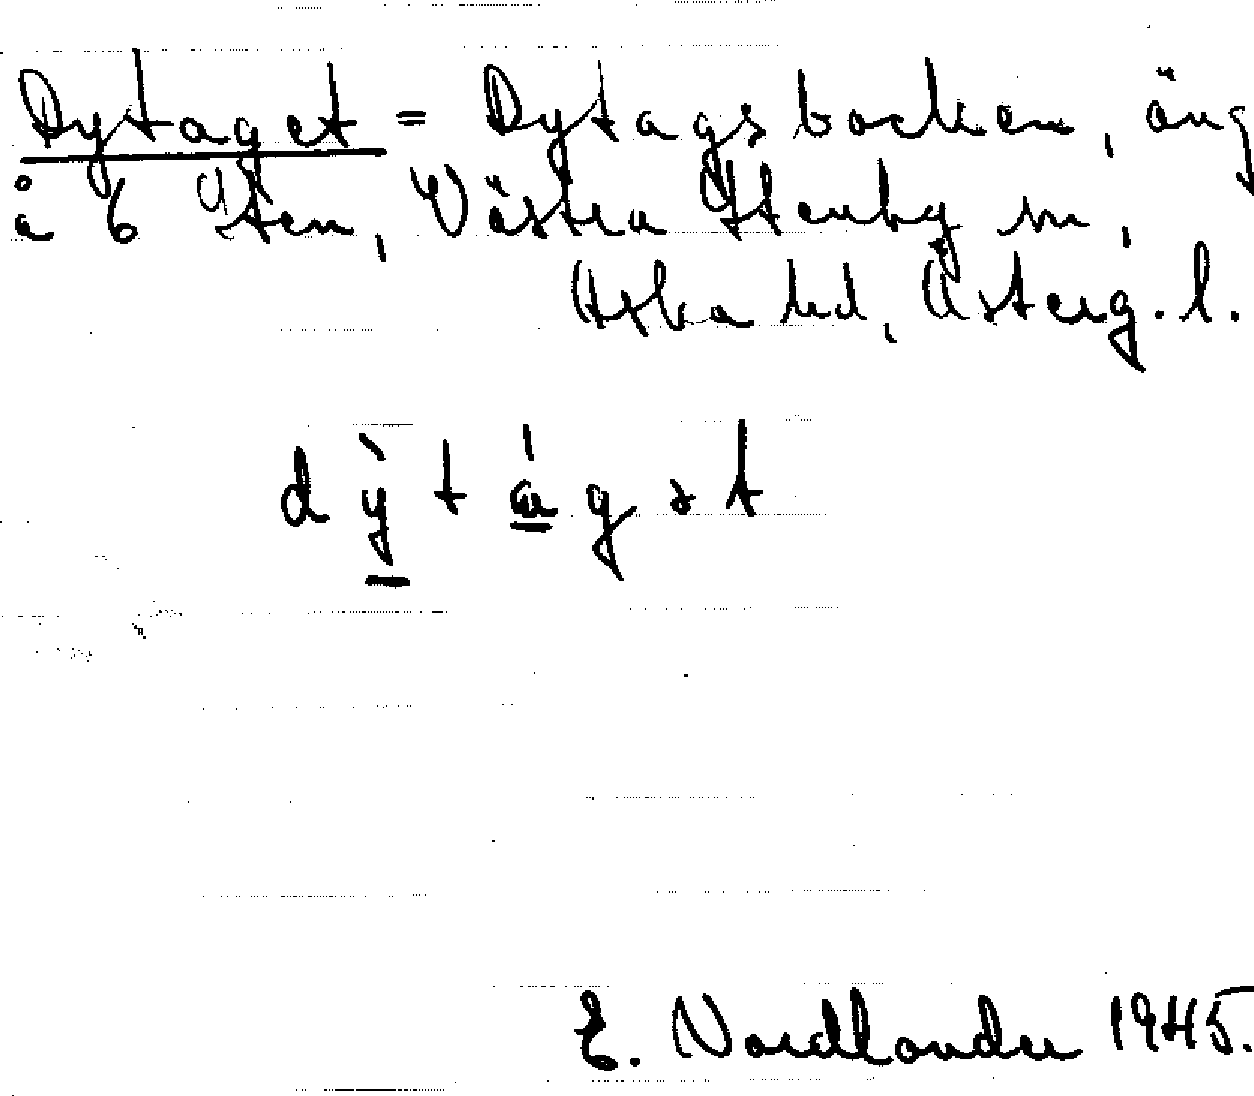 Dytaget = Dytagsbacken, äng
å 6 Sten, Västra Stenby sn,
Aska hd, Österg. l.
dỳ̱tá̱gət
E. Nordlander 1945.